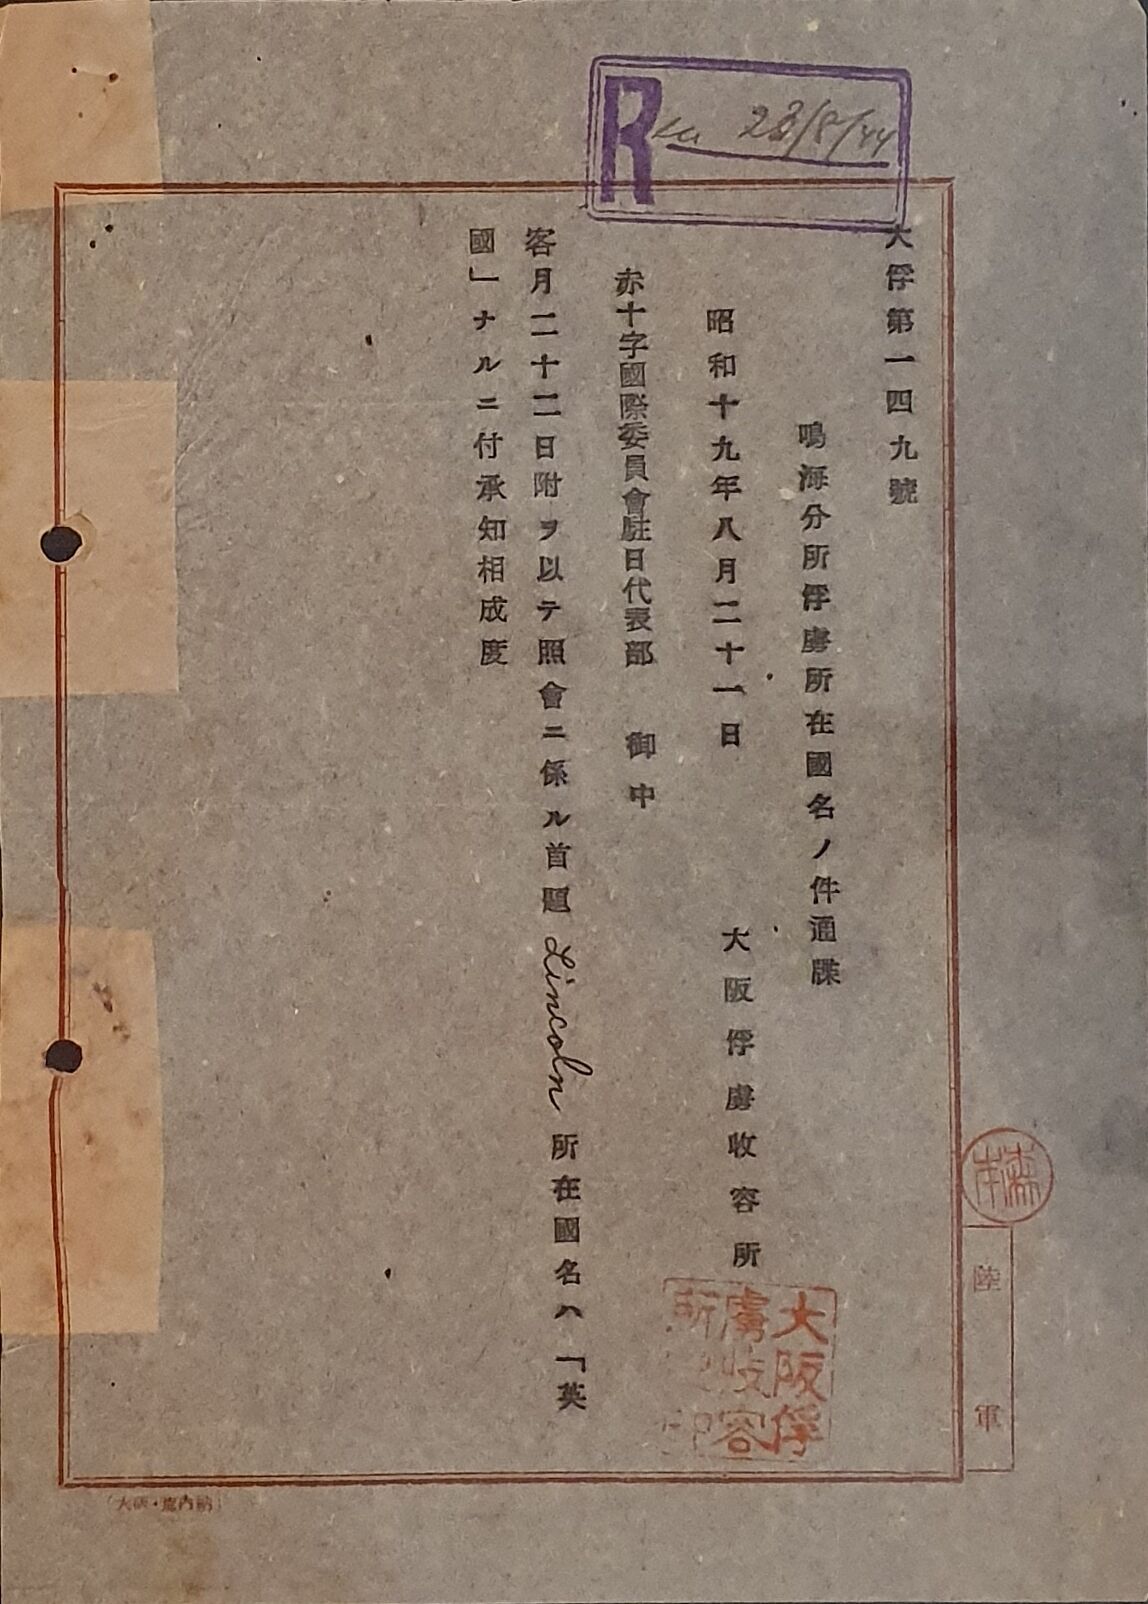 R
28/8/44
大俘第一四九號
鳴海分所俘虜所在國名ノ件通牒
昭和十九年八月二十一日
大阪俘虜收容所
赤十字國際委員會駐日代表部 御中
客月二十二日附ヲ以テ照會ニ係ル首題 Lincoln 所在國名ハ「英
國」ナルニ付承知相成度
大阪俘
虜收容
所
印
陸軍